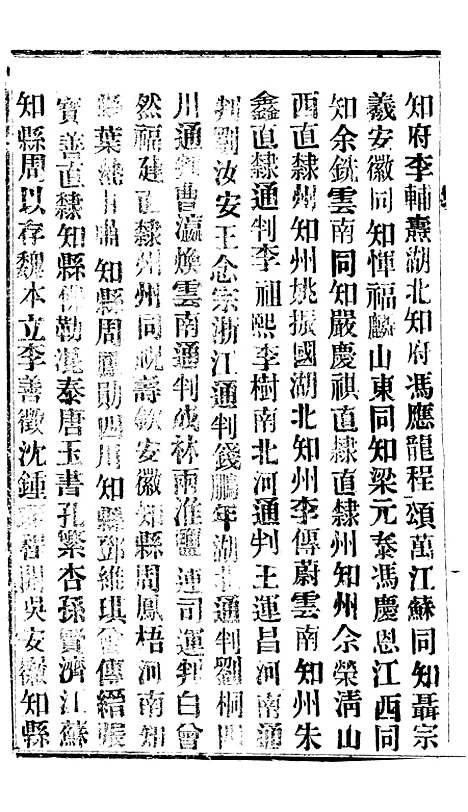 知府李輔燾湖北知府馮應龍程頌萬江蘇同知聶宗
羲安徽同知惲福麟山東同知梁元泰馮慶恩江西同
知余銃雲南同知嚴慶祺直隸直隸州知州余榮清山
西直隸州知州姚振國湖北知州李傳蔚雲南知州朱
鑫直隸通判李祖熙李樹南北河通判王運昌河南通
判劉汝安王念宗浙江通判錢鵬年湖北通判劉桐四
川通判曹瀛煥雲南通判林兩淮鹽運司運判白曾
然福建直隸州州同祝壽欽安徽知縣周鳳梧河南知
縣葉甘肅知縣周勛四川知縣鄧維琪曾傳縉張
寶善直隸知縣佛勒泰唐玉書孔繁杏孫寶濟江蘇
知縣周以存魏本立李善徵沈鍾程吳安徽知縣